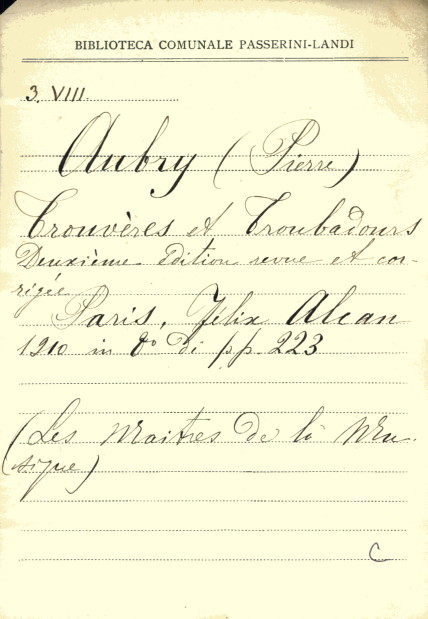 BIBLIOTECA COMUNALE PASSERINI-LANDI
3. VIII.
Aubry (Pierre)
Trouvères et Troubadours
Deuxième Edition revue et cor-
rigée
Paris, Félix Alcan
1910 in 8° di pp. 223
(Les Maitres de la Mu-
sique)
C